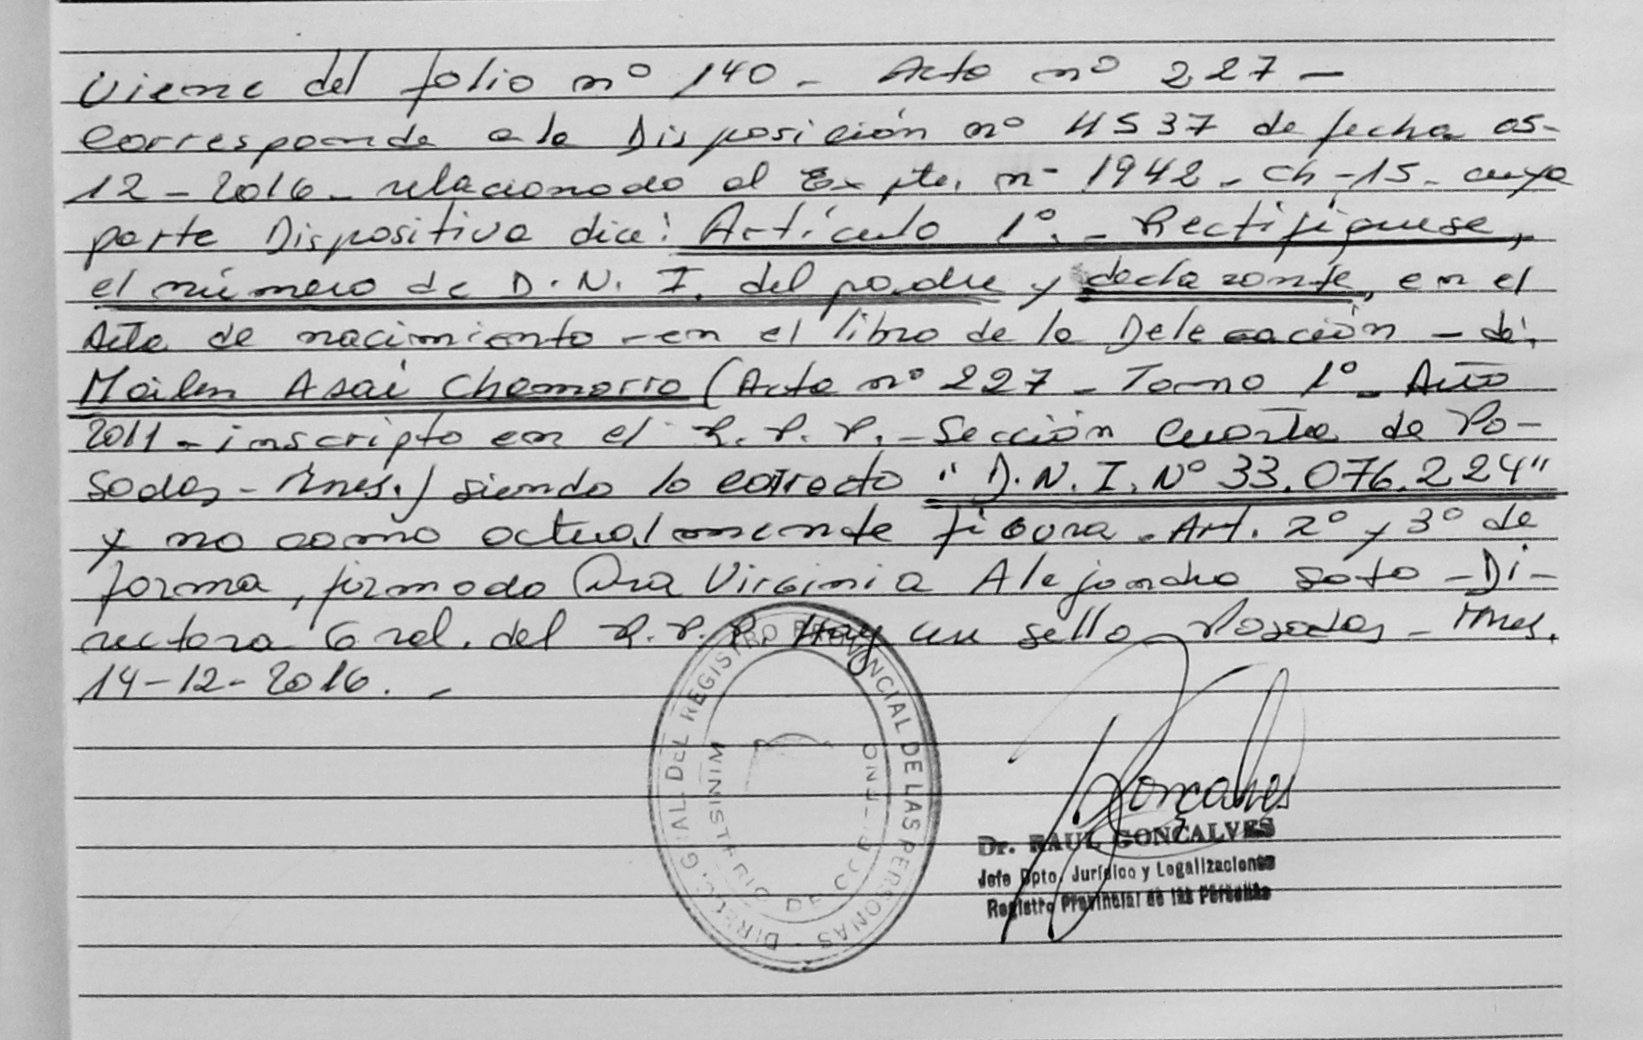 Viene del folio nº 140 - Acta nº 227 -
Corresponde a la Disposición nº 4537 de fecha 05-
12-2016- relacionado al Expte. nº 1942-Ch-15- cuya
parte Dispositiva dice: Artículo 1º.- Rectifíquese,
el número de D.N.I. del padre y declarante, en el
Acta de nacimiento - en el libro de la Delegación - de:
Mailen Asai Chamorro (Acta nº 227 - Tomo 1º - Año
2011 - inscripto en el R.P.P. - Sección Cuarta de Po-
sadas - Mnes.) siendo lo correcto "D.N.I. Nº 33.076.224"
y no como actualmente figura. Art. 2º y 3º de
forma, firmado Dra Virginia Alejandra Soto - Di-
rectora Gral. del R.P.P. Hay un sello. Posadas - Mnes.
14-12-2016. -
DIREC. GRAL. DEL REGISTRO PROVINCIAL DE LAS PERSONAS
MINISTERIO DE GOBIERNO
Gonçalves
Dr. RAUL GONÇALVES
Jefe Dpto. Jurídico y Legalizaciones
Registro Provincial de las Personas